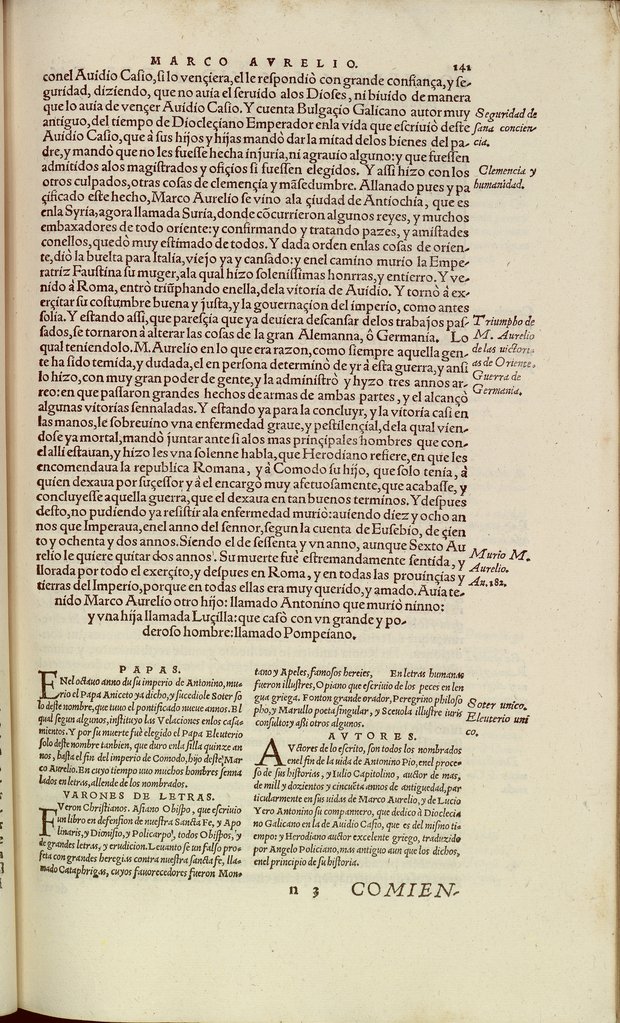 MARCO AVRELIO.
141
conel Auidio Casio, si lo vençiera, el le respondiò con grande confiança, y se-
guridad, diziendo, que no auía el seruído alos Dioses, ni biuído de manera
que lo auía de vençer Auídio Casio. Y cuenta Bulgaçio Galicano autor muy
antiguo, del tiempo de Diocleçiano Emperador enla vida que escriuiò deste
Auidio Casio, que à sus hijos y híjas mandò dar la mitad delos bienes del pa-
dre, y mandò que no les fuesse hecha injuría, ni agrauío alguno: y que fuessen
admitidos alos magistrados y ofiçios si fuessen elegidos. Y assi hizo con los
otros culpados, otras cosas de clemençia y mãsedumbre. Allanado pues y pa
çificado este hecho, Marco Aurelio se vino ala çiudad de Antiochía, que es
enla Syria, agora llamada Suría, donde cõcurrieron algunos reyes, y muchos
embaxadores de todo oriente: y confirmando y tratando pazes, y amistades
conellos, quedò muy estimado de todos. Y dada orden enlas cosas de orien-
te, diò la buelta para Italía, viejo ya y cansado: y enel camino murio la Empe
ratriz Faustina su muger, ala qual hizo solenissimas honrras, y entierro. Y ve-
nido à Roma, entrò triũphando enella, dela vitoría de Auídio. Y tornò à ex-
erçitar su costumbre buena y justa, y la gouernaçion del imperio, como antes
solía. Y estando assi, que paresçía que ya deuiera descansar delos trabajos pas-
sados, se tornaron à alterar las cosas de la gran Alemanna, ô Germanía. Lo
qual teniendolo. M. Aurelio en lo que era razon, como siempre aquella gen-
te ha sido temida, y dudada, el en persona determinò de yr à esta guerra, y ansi
lo hizo, con muy gran poder de gente, y la administrò y hyzo tres annos ar-
reo: en que passaron grandes hechos de armas de ambas partes, y el alcançò
algunas vitorías sennaladas. Y estando ya para la concluyr, y la vitoría casi en
las manos, le sobreuino vna enfermedad graue, y pestilençial, dela qual vien-
dose ya mortal, mandò juntar ante si alos mas prinçipales hombres que con-
el alli estauan, y hízo les vna solenne habla, que Herodiano refiere, en que les
encomendaua la republica Romana, y à Comodo su hijo, que solo tenía, à
quien dexaua por suçessor y à el encargò muy afetuosamente, que acabasse, y
concluyesse aquella guerra, que el dexaua en tan buenos terminos. Y despues
desto, no pudiendo ya resistir ala enfermedad murìo: auiendo diez y ocho an
nos que Imperaua, enel anno del sennor, segun la cuenta de Eusebío, de çien
to y ochenta y dos annos. Siendo el de sessenta y vn anno, aunque Sexto Au
relio le quiere quitar dos annos. Su muerte fuè estremadamente sentida, y
llorada por todo el exerçito, y despues en Roma, y en todas las prouinçias y
tierras del Imperio, porque en todas ellas era muy querido, y amado. Auía te-
nido Marco Aurelio otro hijo: llamado Antonino que muriò ninno:
y vna hija llamada Luçilla: que casò con vn grande y po-
deroso hombre: llamado Pompeiano.
Seguridad de
sana concien
cia.
Clemencia y
humanidad.
Triumpho de
M. Aurelio
de las uictori-
as de Oriente.
Guerra de
Germania.
Murio M.
Aurelio.
An. 182.
PAPAS.
ENel octauo anno du su imperio de Antonino, mu-
rio el Papa Aniceto ya dicho, y sucediole Soter so
lo deste nombre, que tuuo el pontificado nueue annos. El
qual segun algunos, instituyo las Velaciones enlos casa-
mientos. Y por su muerte fuè elegido el Papa Eleuterio
solo deste nombre tanbien, que duro enla silla quinze an
nos, hasta el fin del imperio de Comodo, hijo deste Mar
co Aurelio. En cuyo tiempo uuo muchos hombres senna
lados en letras, allende de los nombrados.
VARONES DE LETRAS.
FVeron Christianos. Asiano Obispo, que escriuio
un libro en defension de nuestra Sancta Fe, y Apo
linaris, y Dionisio, y Policarpo, todos Obispos, y
de grandes letras, y erudicion. Leuanto se un falso pro-
feta con grandes heregias contra nuestra sancta fe, lla-
mado Cataphrigas, cuyos fauorecedores fueron Mon-
tano y Apeles, famosos hereies, En letras humanas
fueron illustres, Opiano que escriuio de los peces en len
gua griega. Fonton grande orador, Peregrino philoso
pho, y Marullo poeta singular, y Sceuola illustre iuris
consulto: y assi otros algunos.
AVTORES.
AVctores de lo escrito, son todos los nombrados
enel fin de la uida de Antonino Pio, enel proce-
so de sus historias, y Iulio Capitolino, auctor de mas,
de mill y dozientos y cincuẽta annos de antiguedad, par
ticularmente en sus uidas de Marco Aurelio, y de Lucio
Vero Antonino su compannero, que dedicò à Dioclecia
no Galicano en la de Auidio Casio, que es del mismo tiẽ
mpo: y Herodiano auctor excelente griego, traduzido
por Angelo Policiano, mas antiguo aun que los dichos,
enel principio de su historia.
Soter unico.
Eleuterio uni
co.
n 3
COMIEN-